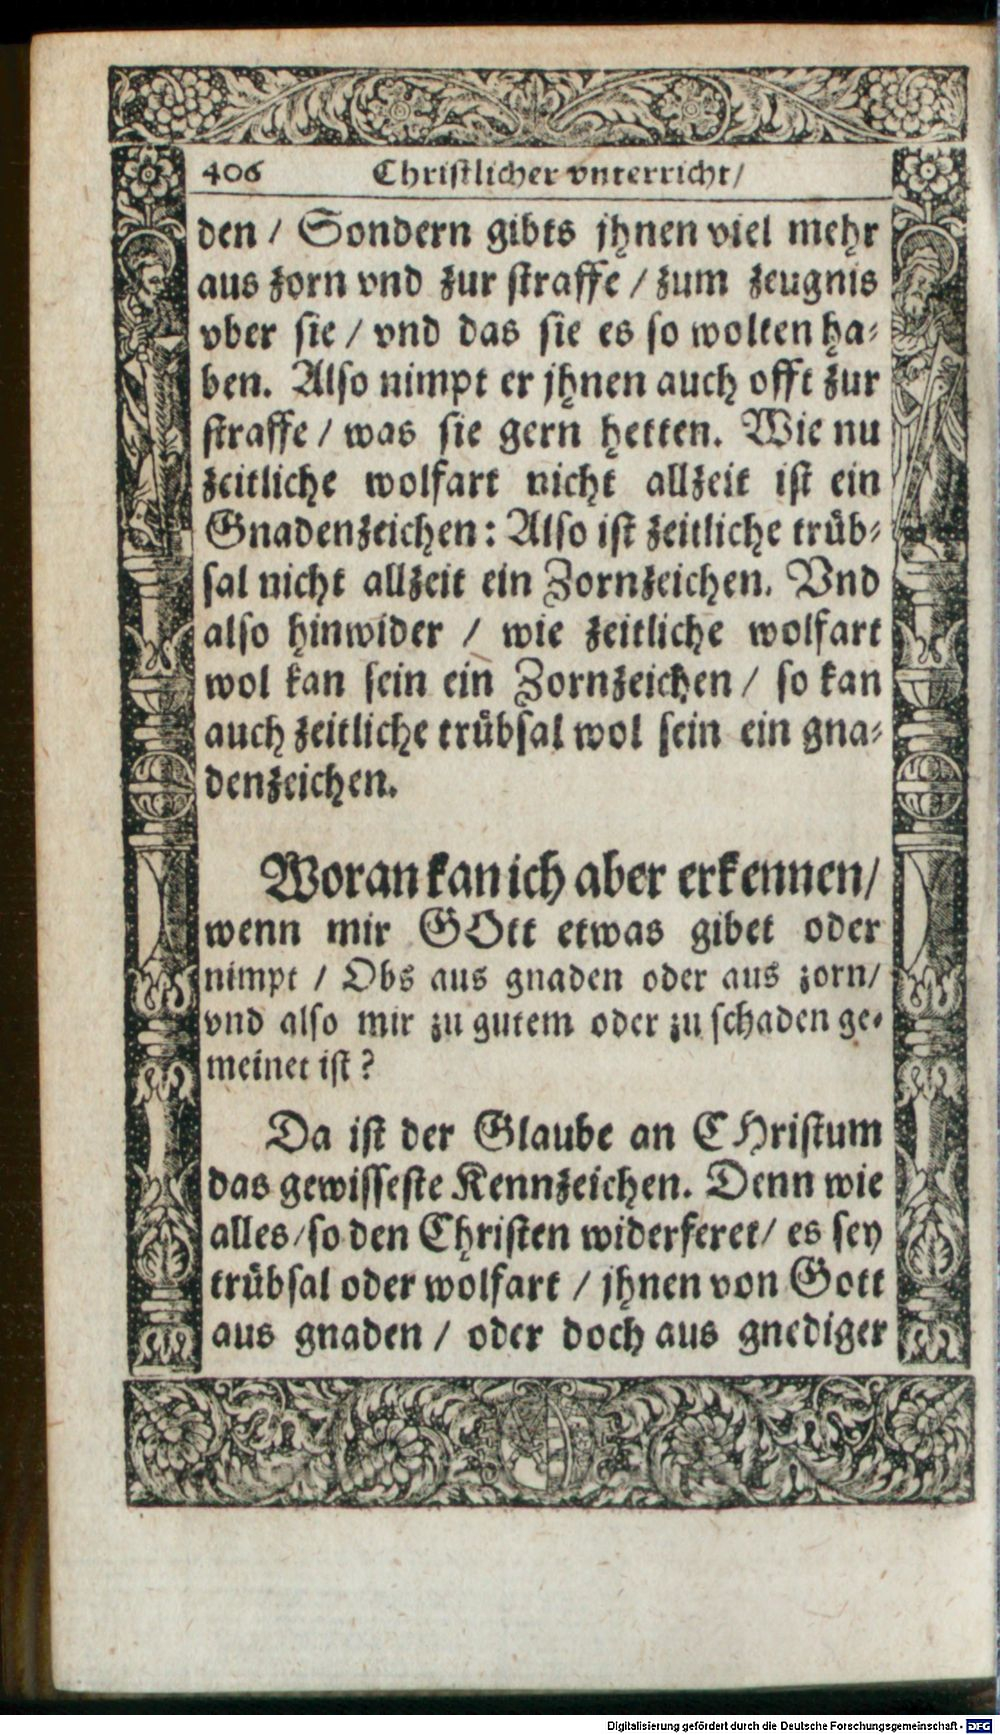 406 Christlicher vnterricht/
den / Sondern gibts jhnen viel mehr
aus zorn vnd zur straffe / zum zeugnis
vber sie / vnd das sie es so wolten ha-
ben. Also nimpt er jhnen auch offt zur
straffe / was sie gern hetten. Wie nu
zeitliche wolfart nicht allzeit ist ein
Gnadenzeichen: Also ist zeitliche trüb-
sal nicht allzeit ein Zornzeichen. Vnd
also hinwider / wie zeitliche wolfart
wol kan sein ein Zornzeichen / so kan
auch zeitliche trübsal wol sein ein gna-
denzeichen.
Woran kan ich aber erkennen/
wenn mir GOtt etwas gibet oder
nimpt / Obs aus gnaden oder aus zorn/
vnd also mir zu gutem oder zu schaden ge-
meinet ist?
Da ist der Glaube an CHristum
das gewisseste Kennzeichen. Denn wie
alles/so den Christen widerferet/ es sey
trübsal oder wolfart / jhnen von Gott
aus gnaden / oder doch aus gnediger
Digitalisierung gefördert durch die Deutsche Forschungsgemeinschaft - DFG